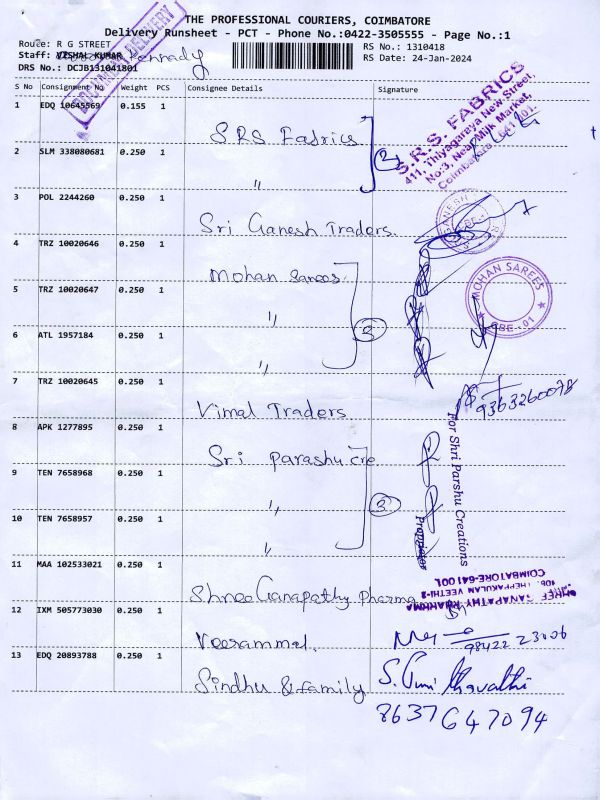 THE PROFESSIONAL COURIERS, COIMBATORE
Delivery Runsheet - PCT - Phone No.:0422-3505555 - Page No.:1
Route: R G STREET
RS No.: 1310418
Staff: VISHAL KUMAR Kennady
RS Date: 24-Jan-2024
DRS No.: DCJB131041801
DOCUMENT DELIVERY
S No Consignment No Weight PCS Consignee Details Signature
1 EDQ 10645569 0.155 1 S.R.S Fabrics
2 SLM 338080681 0.250 1 "
2
S.R.S. FABRICS
411, Thiyagaraya New Street,
No:3, Near Milk Market,
Coimbatore - 641 001.
3 POL 2244260 0.250 1 Sri Ganesh Traders.
4 TRZ 10020646 0.250 1 Mohan Sarees
5 TRZ 10020647 0.250 1 "
6 ATL 1957184 0.250 1 "
3
MOHAN SAREES
CBE - 01
7 TRZ 10020645 0.250 1 Vimal Traders
9363260078
8 APK 1277895 0.250 1 Sri parashu cre
9 TEN 7658968 0.250 1 "
10 TEN 7658957 0.250 1 "
3
for Shri Parshu Creations
Proprietor
11 MAA 102533021 0.250 1 Shree Ganapathy pharma
SHREE GANAPATHY PHARMA
106, THEPPAKULAM VEETHI-2
COIMBATORE-641 001.
12 IXM 505773030 0.250 1 Veerammal.
98422 23006
13 EDQ 20893788 0.250 1 Sindhu & family
8637647094